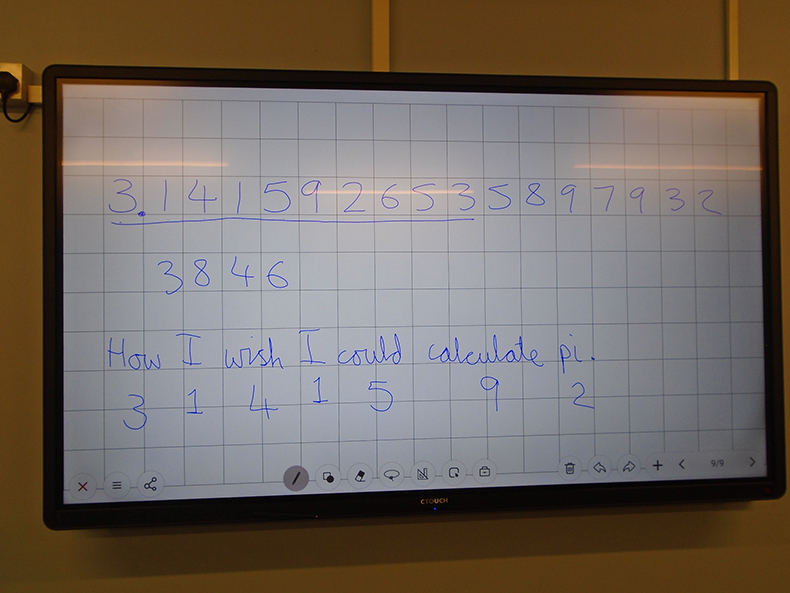 3.1415926535897932
3846
How I wish I could calculate pi.
3 1 4 1 5 9 2
9/9
CTOUCH